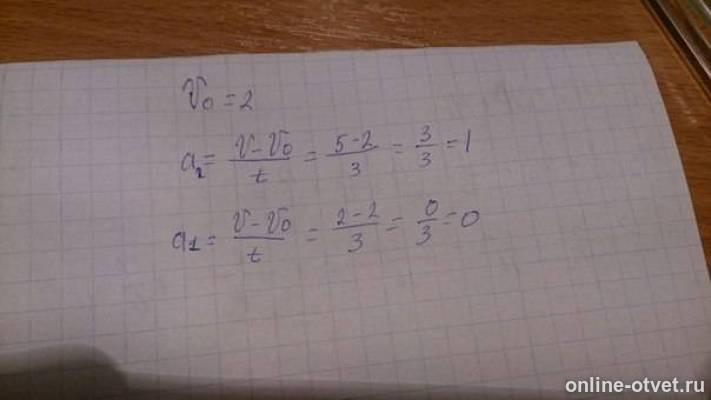 V₀ = 2
a₂ = (V - V₀)/t = (5 - 2)/3 = 3/3 = 1
a₁ = (V - V₀)/t = (2 - 2)/3 = 0/3 = 0
online-otvet.ru